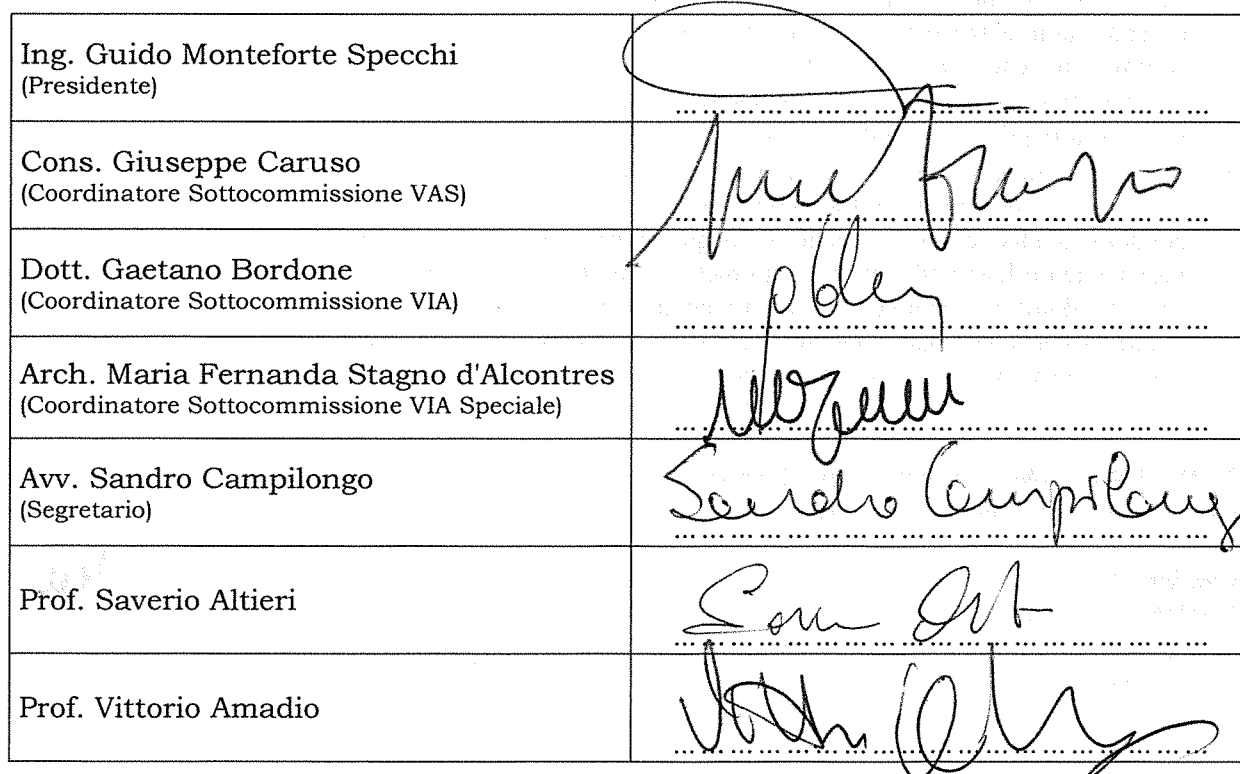 Ing. Guido Monteforte Specchi
(Presidente)
Cons. Giuseppe Caruso
(Coordinatore Sottocommissione VAS)
Dott. Gaetano Bordone
(Coordinatore Sottocommissione VIA)
Arch. Maria Fernanda Stagno d'Alcontres
(Coordinatore Sottocommissione VIA Speciale)
Avv. Sandro Campilongo
(Segretario)
Sandro Campilong
Prof. Saverio Altieri
Prof. Vittorio Amadio